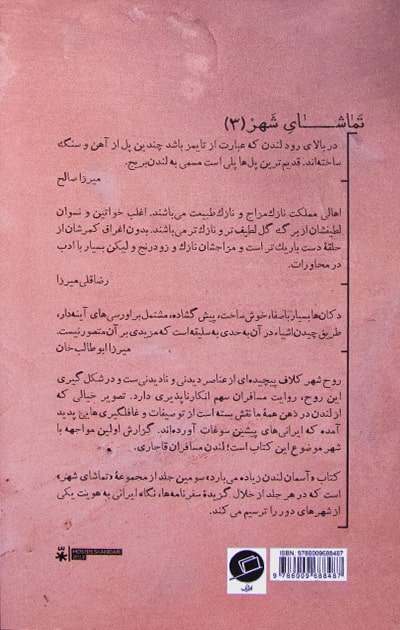 تماشای شهر (۳)
در بالای رود لندن که عبارت از تایمز باشد چندین پل از آهن و سنگ
ساخته‌اند. قدیم‌ترین پل‌ها پلی است مسمی به لندن بریج.
میرزا صالح
اهالی مملکت نازک‌مزاج و نازک‌طبیعت می‌باشند. اغلب خواتین و نسوان
لطیفشان از برگ گل لطیف‌تر و نازک‌تر می‌باشند. بدون اغراق کمرشان از
حلقهٔ دست باریک‌تر است و مزاجشان نازک و زودرنج و لیکن بسیار با ادب
در محاورات.
رضاقلی میرزا
دکان‌ها بسیار باصفا، خوش‌ساخت، پیش‌گشاده، مشتمل بر اورسی‌های آینه‌دار،
طریق چیدن اشیاء در آن به حدی به سلیقه است که مزیدی بر آن متصور نیست.
میرزا ابوطالب خان
روح شهر کلاف پیچیده‌ای از عناصر دیدنی و نادیدنی‌ست و در شکل‌گیری
این روح، روایت مسافران سهم انکارناپذیری دارد. تصویر خیالی که
از لندن در ذهن همهٔ ما نقش بسته است از توصیفات و غافلگیری‌هایی پدید
آمده که ایرانی‌های پیشین سوغات آورده‌اند. گزارش اولین مواجهه با
شهر موضوع این کتاب است؛ لندن مسافران قاجاری.
کتاب «آسمان لندن زیاده می‌بارد» سومین جلد از مجموعهٔ «تماشای شهر»
است که در هر جلد از خلال گزیدهٔ سفرنامه‌ها، نگاه ایرانی به هویت یکی
از شهرهای دور را ترسیم می‌کند.
ISBN: 9786009688487
9 786009 688487